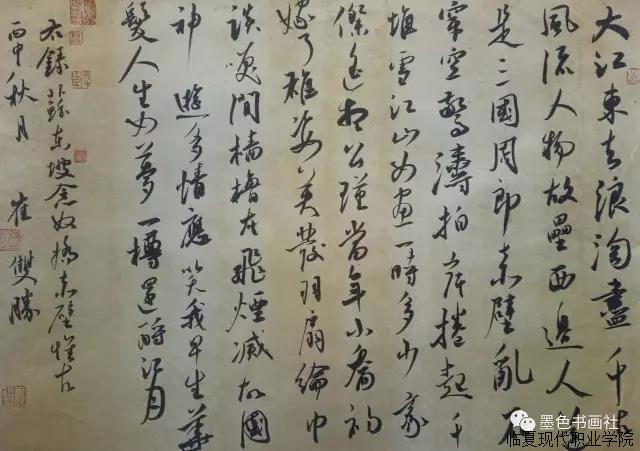 大江東去浪淘盡千古
風流人物故壘西邊人道
是三國周郎赤壁亂石
穿空驚濤拍岸捲起千
堆雪江山如畫一時多少豪
傑遙想公瑾當年小喬初
嫁了雄姿英發羽扇綸巾
談笑間檣櫓灰飛煙滅故國
神遊多情應笑我早生華
髮人生如夢一樽還酹江月
右錄蘇東坡念奴嬌赤壁懷古
丙申秋月 崔雙勝
墨色书画社
临夏现代职业学院